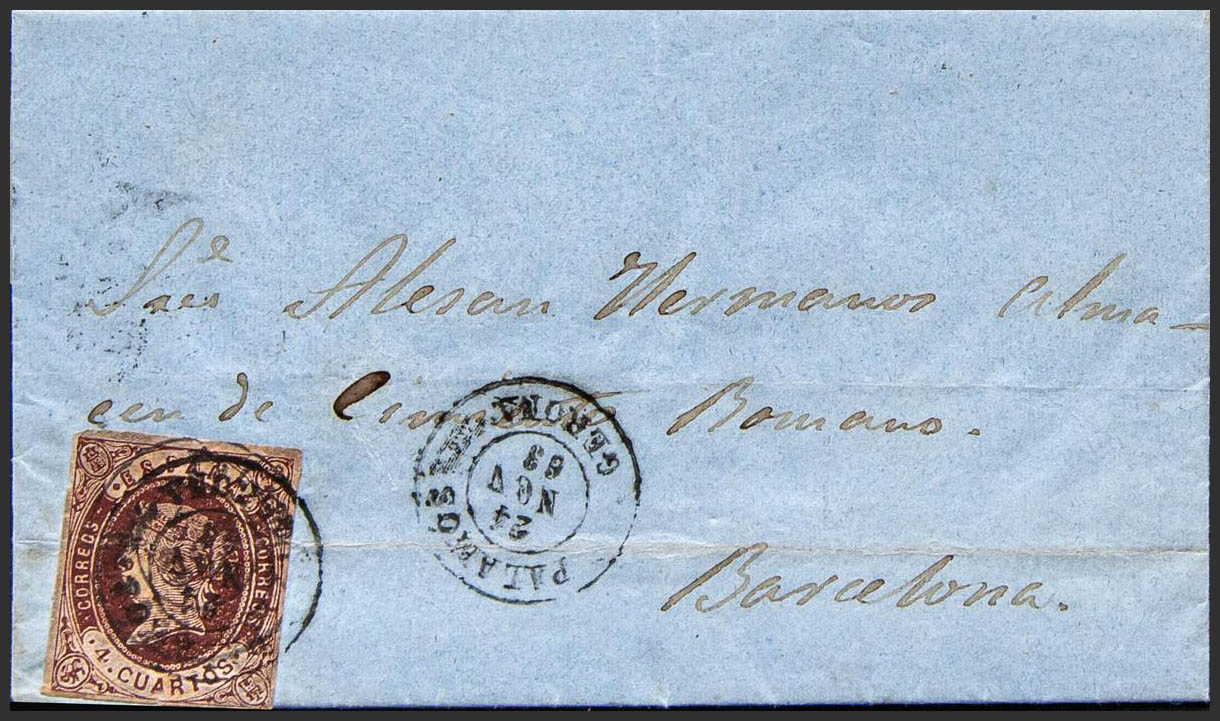 Sres Alesan Hermanos Alma-
cen de Cimiento Romano.
Barcelona.
PALAMOS
GERONA
24
NOV
63
ESPAÑA
CORREOS
CORREOS
4. CUARTOS.